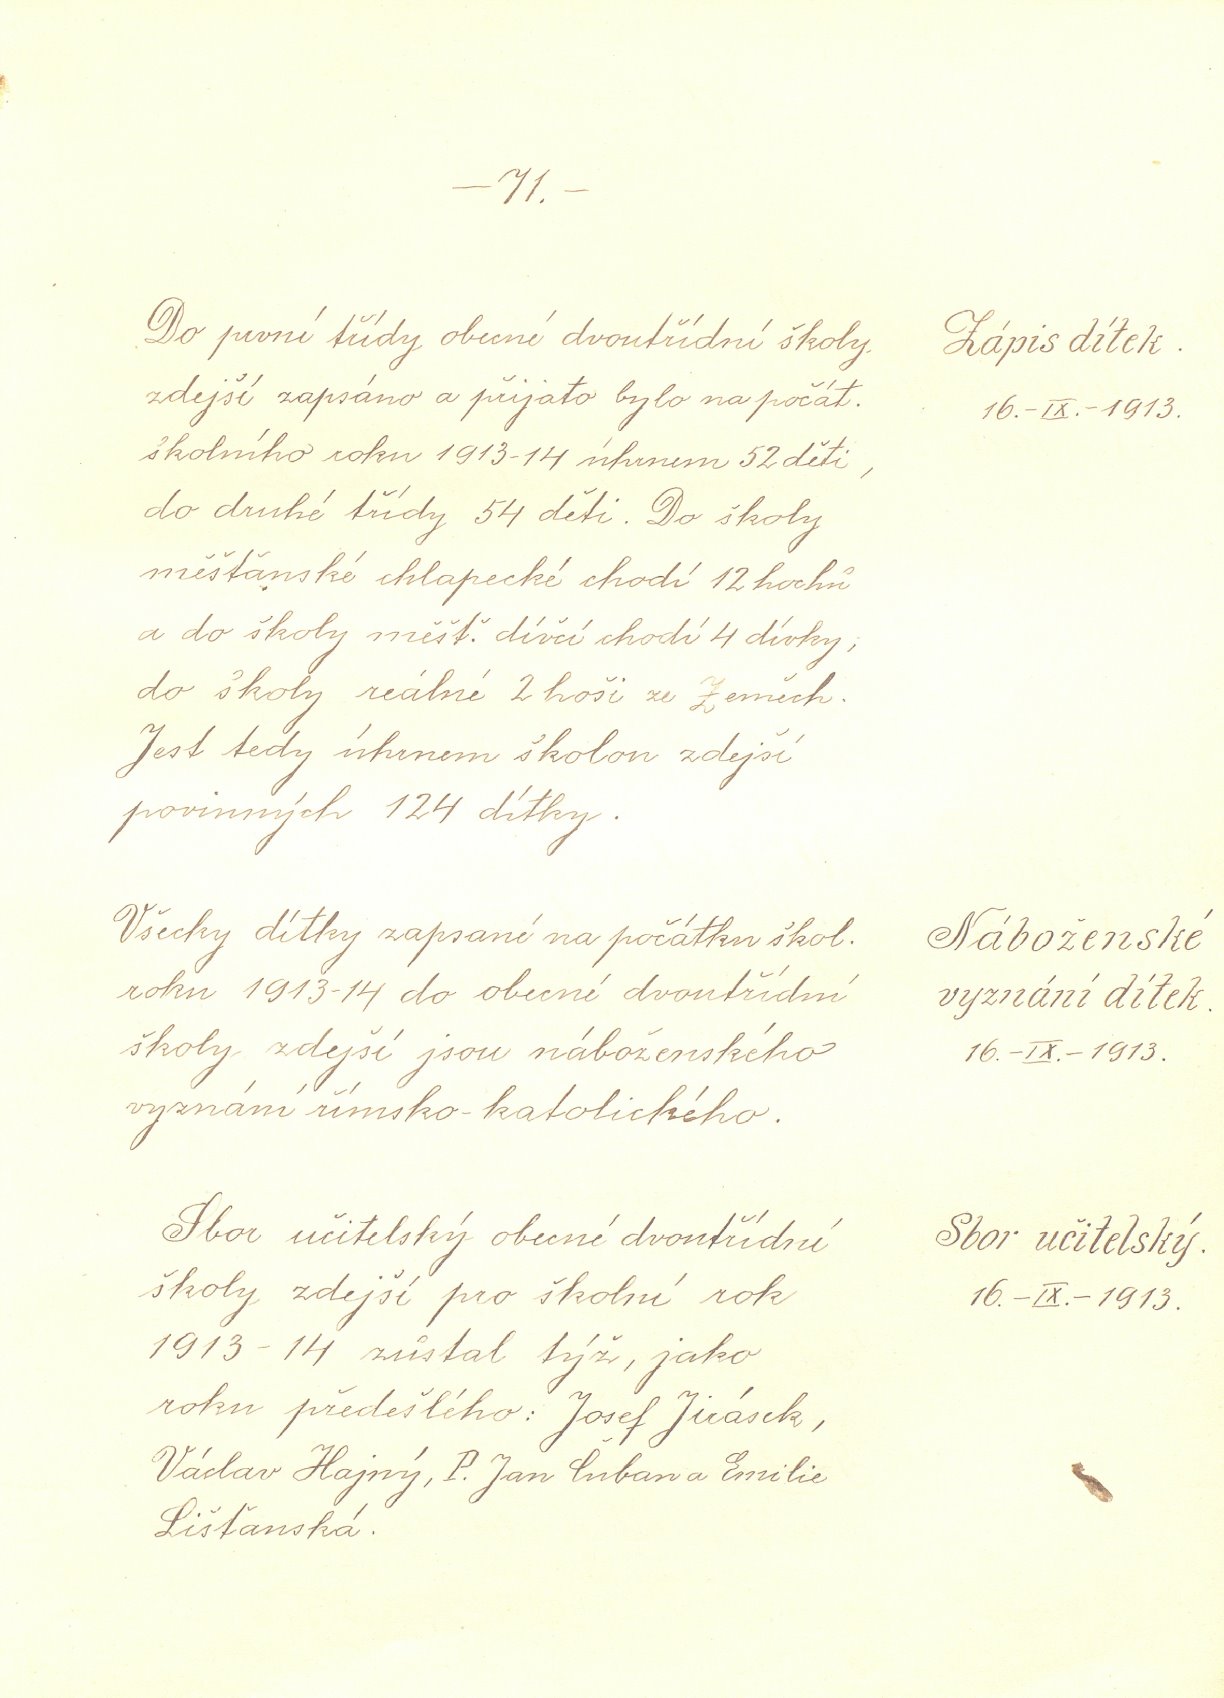 — 71. —
Do první třídy obecné dvoutřídní školy
zdejší zapsáno a přijato bylo na počát.
školního roku 1913-14 úhrnem 52 děti,
do druhé třídy 54 děti. Do školy
měšťanské chlapecké chodí 12 hochů
a do školy měšť. dívčí chodí 4 dívky,
do školy reálné 2 hoši ze Zeměch.
Jest tedy úhrnem školou zdejší
povinných 124 dítky.
Zápis dítek.
16.-IX.-1913.
Všecky dítky zapsané na počátku škol.
roku 1913-14 do obecné dvoutřídní
školy zdejší jsou náboženského
vyznání římsko-katolického.
Náboženské
vyznání dítek.
16.-IX.-1913.
Sbor učitelský obecné dvoutřídní
školy zdejší pro školní rok
1913-14 zůstal týž, jako
roku předešlého: Josef Jirásek,
Václav Hajný, P. Jan Čuban a Emilie
Lišťanská.
Sbor učitelský.
16.-IX.-1913.